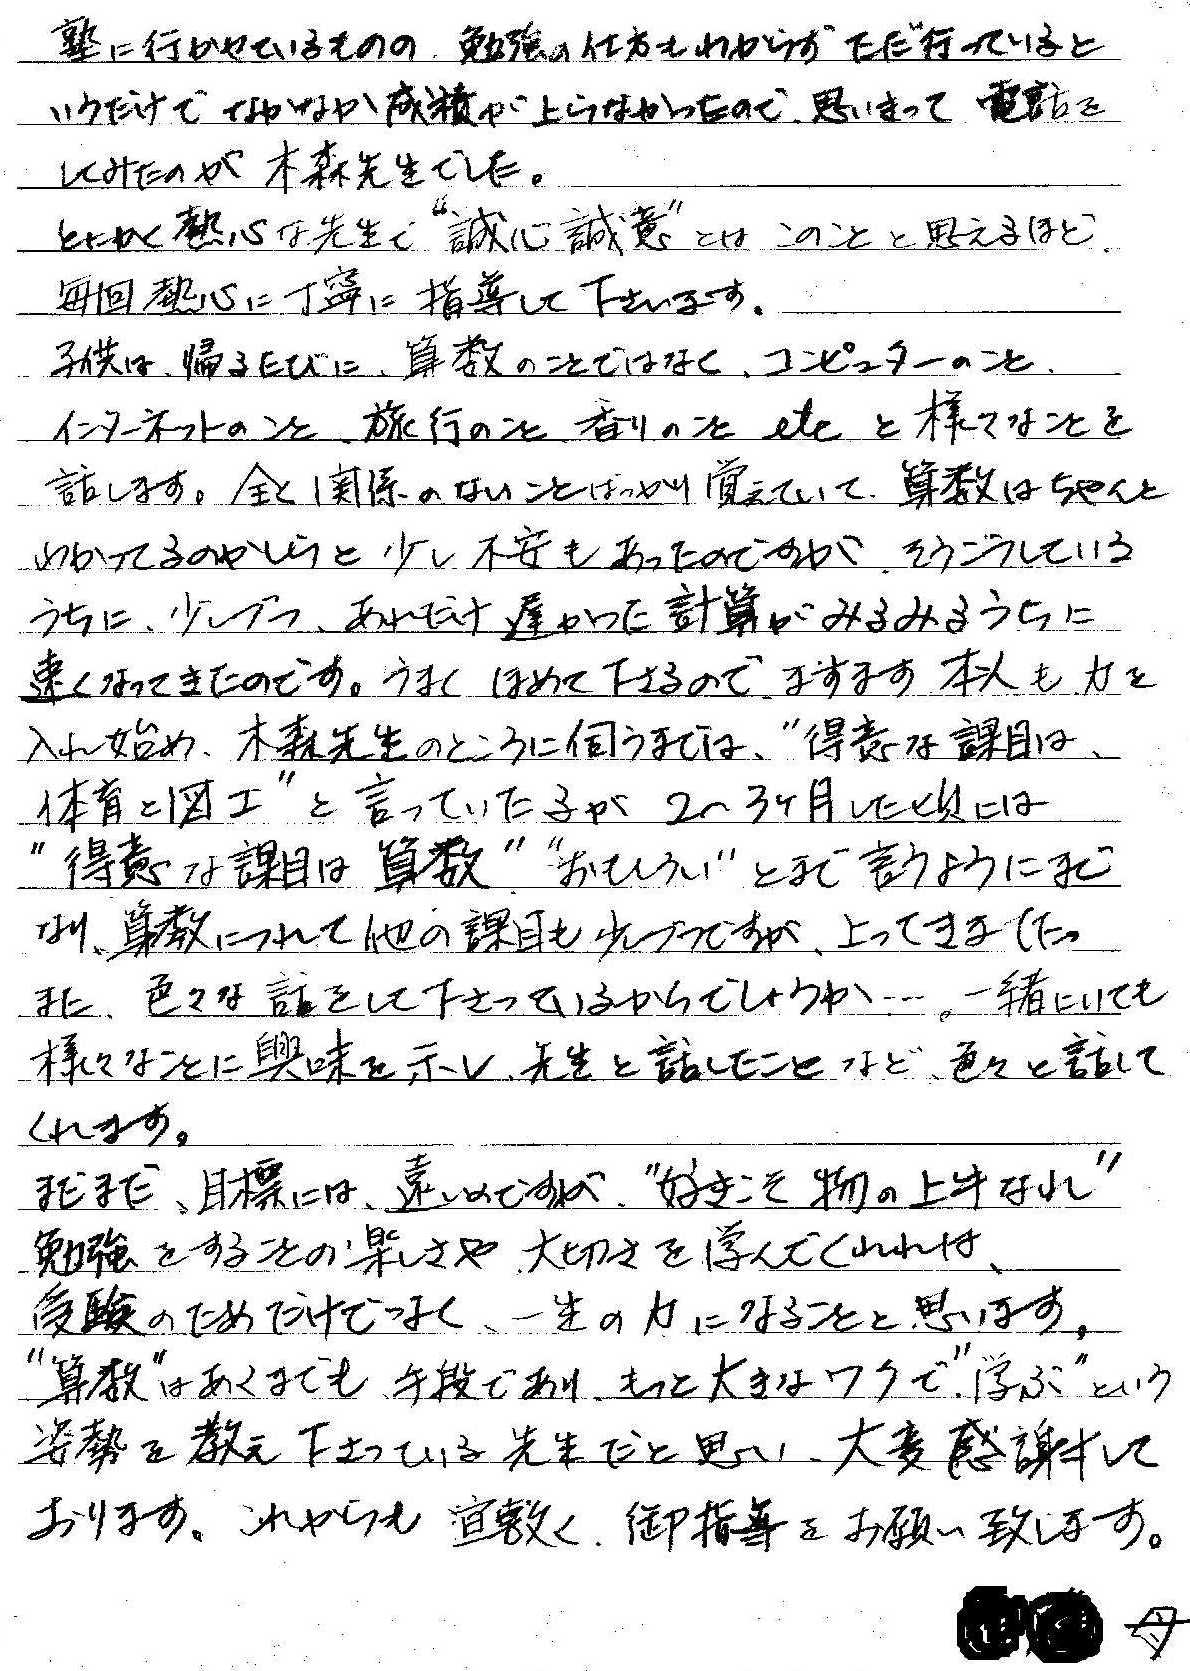 塾に行かせているものの、勉強の仕方もわからず ただ行っていると
いうだけで なかなか成績が上らなかったので、思いきって 電話を
してみたのが 木森先生でした。
とにかく熱心な先生で“誠心誠意”とは このことと思えるほど、
毎回熱心に丁寧に 指導して下さいます。
子供は、帰るたびに、算数のことではなく、コンピューターのこと、
インターネットのこと、旅行のこと、香りのこと etc と様々なことを
話します。全く関係のないことばっかり覚えていて、算数はちゃんと
わかってるのかしらと 少し不安もあったのですが、そうこうしている
うちに、少しづつ、あれだけ遅かった計算がみるみるうちに
速くなってきたのです。うまく ほめて下さるので、ますます 本人も力を
入れ始め、木森先生のところに伺うまでは、“得意な課目は、
体育と図工”と言っていた子が 2〜3ヶ月した頃には
“得意な課目は 算数”“おもしろい”とまで 言うようにまで
なり、算数につれて他の課目も少しづつですが、上ってきました。
また、色々な話をして下さっているからでしょうか…。一緒にいても
様々なことに興味を示し、先生と話したことなど、色々と話して
くれます。
まだまだ、目標には、遠いのですが、“好きこそ物の上手なれ”
勉強をすることの楽しさや、大切さを学んでくれれば、
受験のためだけでなく、一生の力になることと思います。
“算数”はあくまでも 手段であり、もっと大きなワクで“学ぶ”という
姿勢を教え下さっている先生だと思い、大変感謝して
おります。これからも 宜敷く、御指導をお願い致します。
母